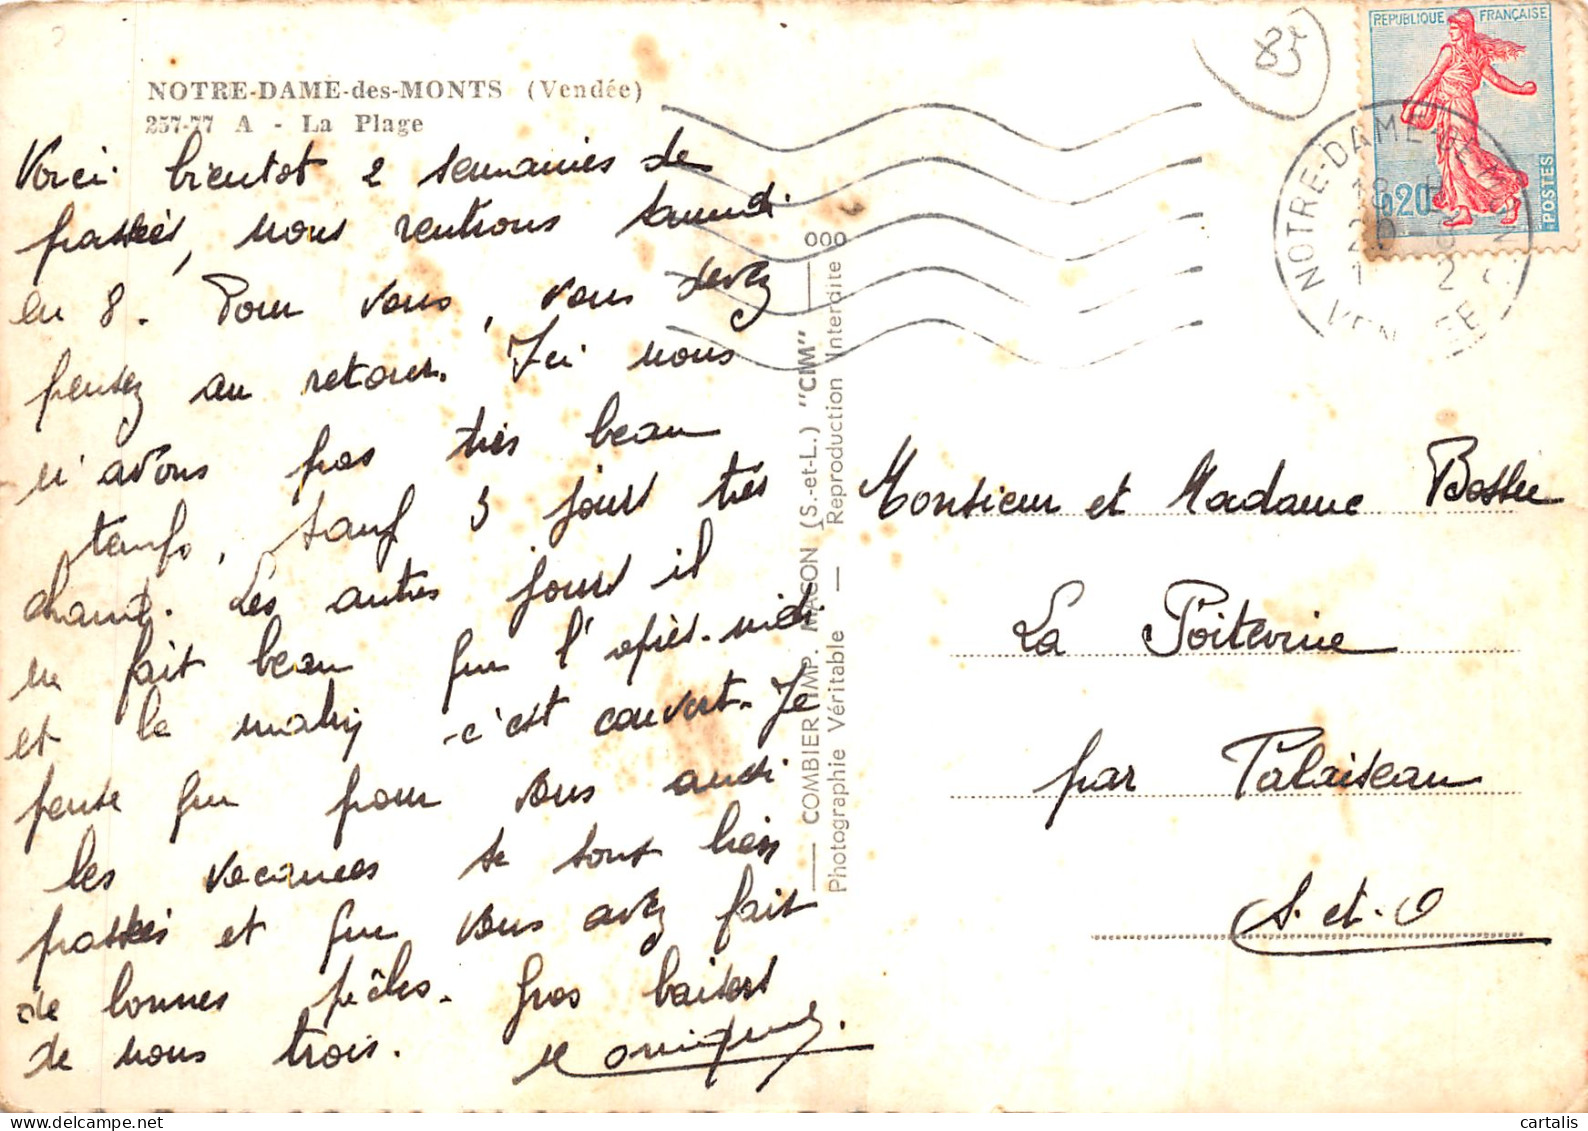 NOTRE-DAME-des-MONTS (Vendée)
257-77 A - La Plage
Voici bientot 2 semaines de
passées, nous rentrons samedi
en 8. Pour vous, vous devez
pensez au retour. Ici nous
n'avons pas très beau
temps, sauf 3 jours très
chaud. Les autres jours il
en fait beau que l'après-midi
et le matin c'est couvert. Je
pense que pour vous aussi
les vacances se sont bien
passées et que vous avez fait
de bonnes pêches. Gros baisers
de nous trois. Monique.
COMBIER IMP. MACON (S.-et-L.) "CIM"
Photographie Véritable — Reproduction Interdite
000
85
REPUBLIQUE FRANÇAISE
0,20
POSTES
NOTRE-DAME-DE-MONTS
VENDEE
Monsieur et Madame
La Poitevine
par Palaiseau
S. et. O
cartalis